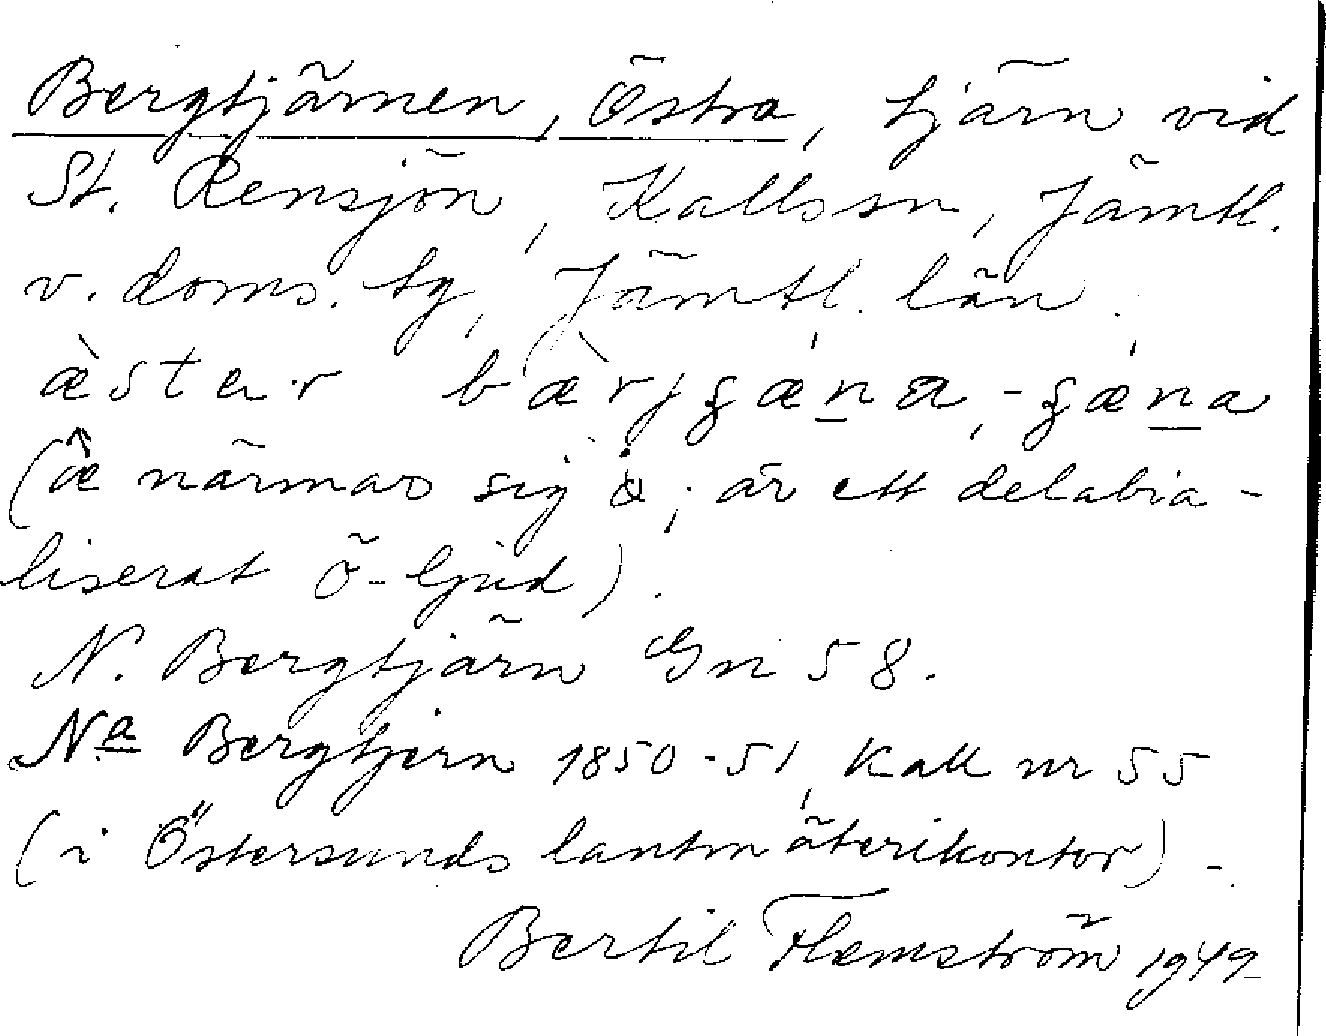 Bergtjärnen, Östra, tjärn vid
St. Rensjön, Kalls sn, Jämtl.
v. doms. tg, Jämtl. län.
æ̀star
(æ närmar sig ö; är ett delabia-
liserat ö-ljud).
N. Bergtjärn Gn 58.
Na Bergtjern 1850-51, Kall nr 55
(i Östersunds lantmäterikontor) -
Bertil Flemström 1949